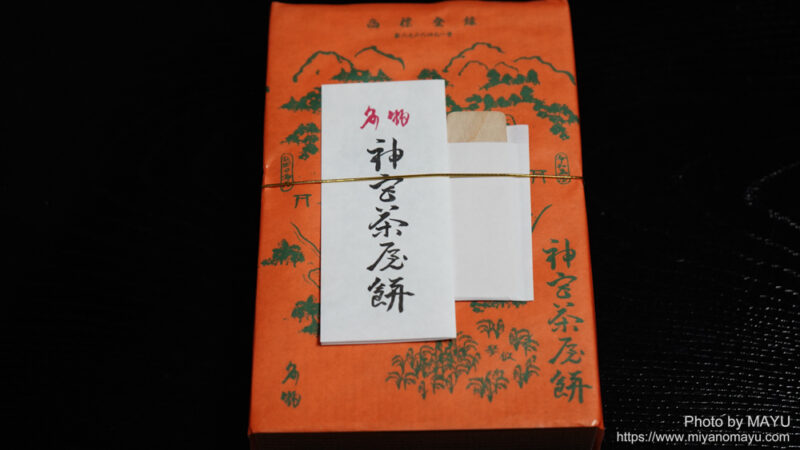 商標登録
名物
神宮茶屋餅
神宮茶屋餅
名物
Photo by MAYU
https://www.miyanomayu.com